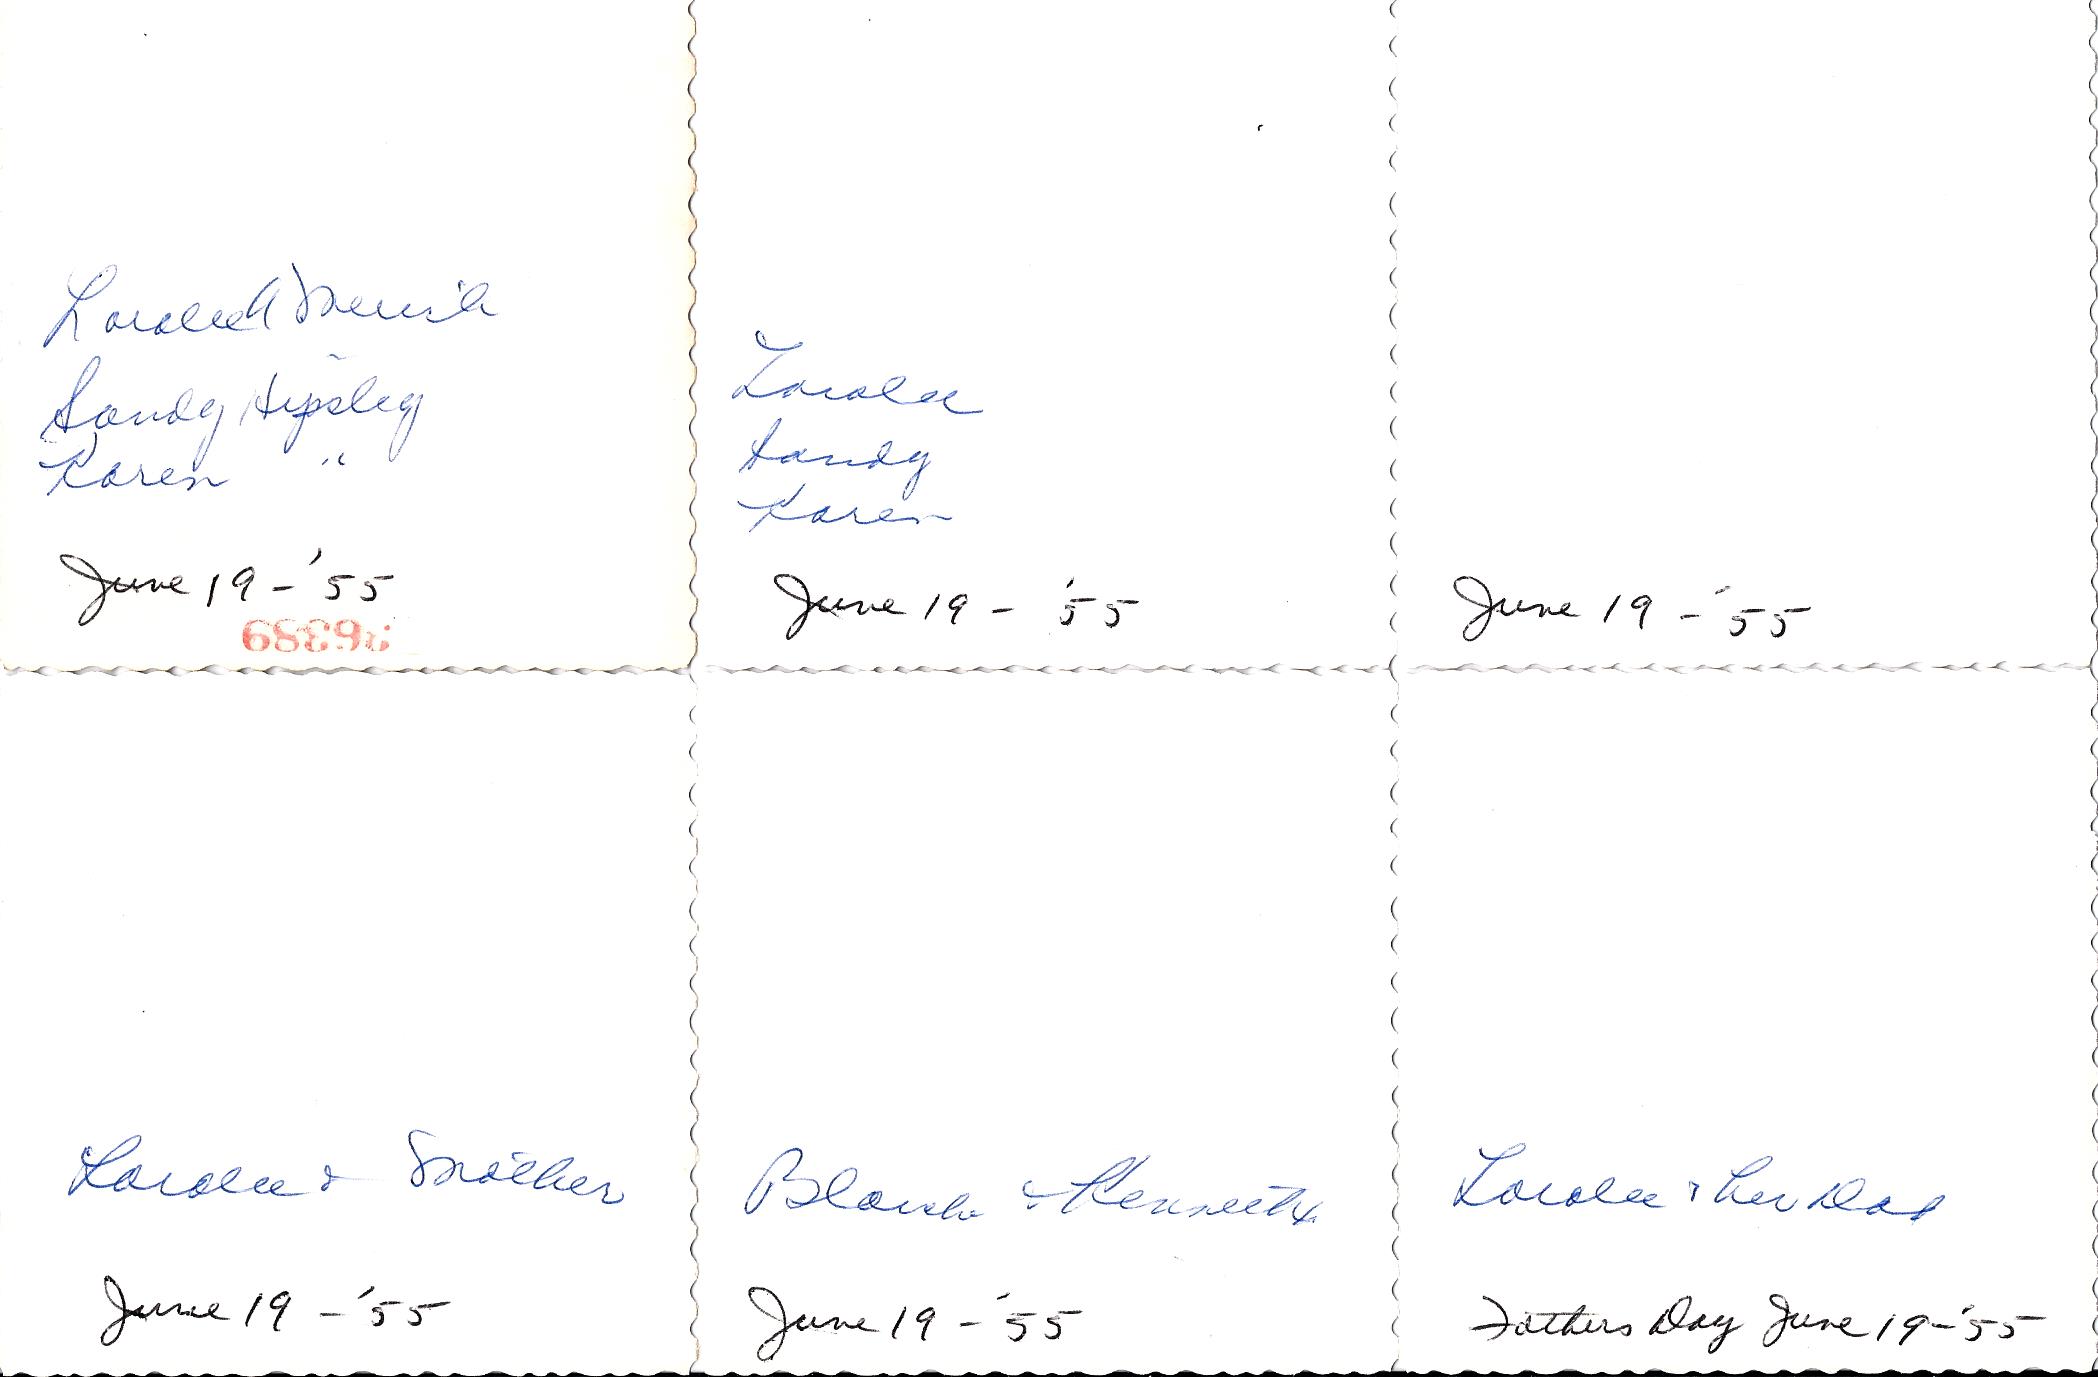 Loralee
Sandy Hipsley
Karen "
June 19 - '55
Loralee
Sandy
Karen
June 19 - '55
June 19 - '55
Loralee & Mother
June 19 - '55
Blanche & Kenneth
June 19 - '55
Loralee & her Dad
Fathers Day June 19 - '55